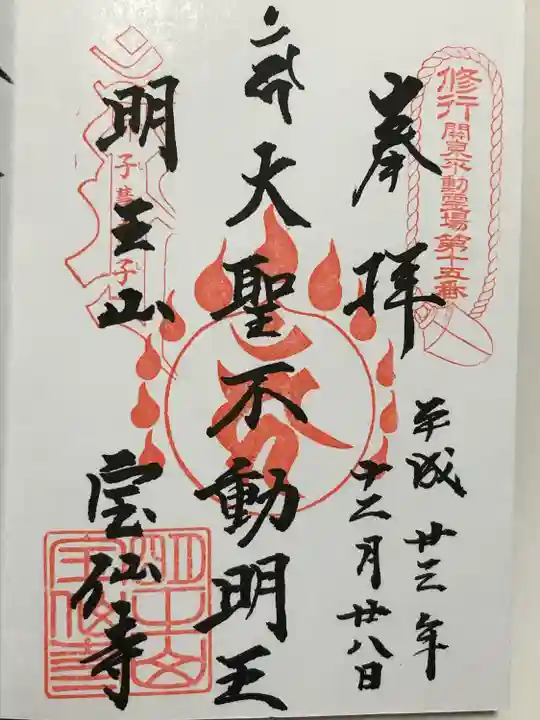 修行 關東不動霊場 第十五番
奉拝
平成廿三年
十二月廿八日
大聖不動明王
明王山
宝仙寺
明王山
宝仙寺